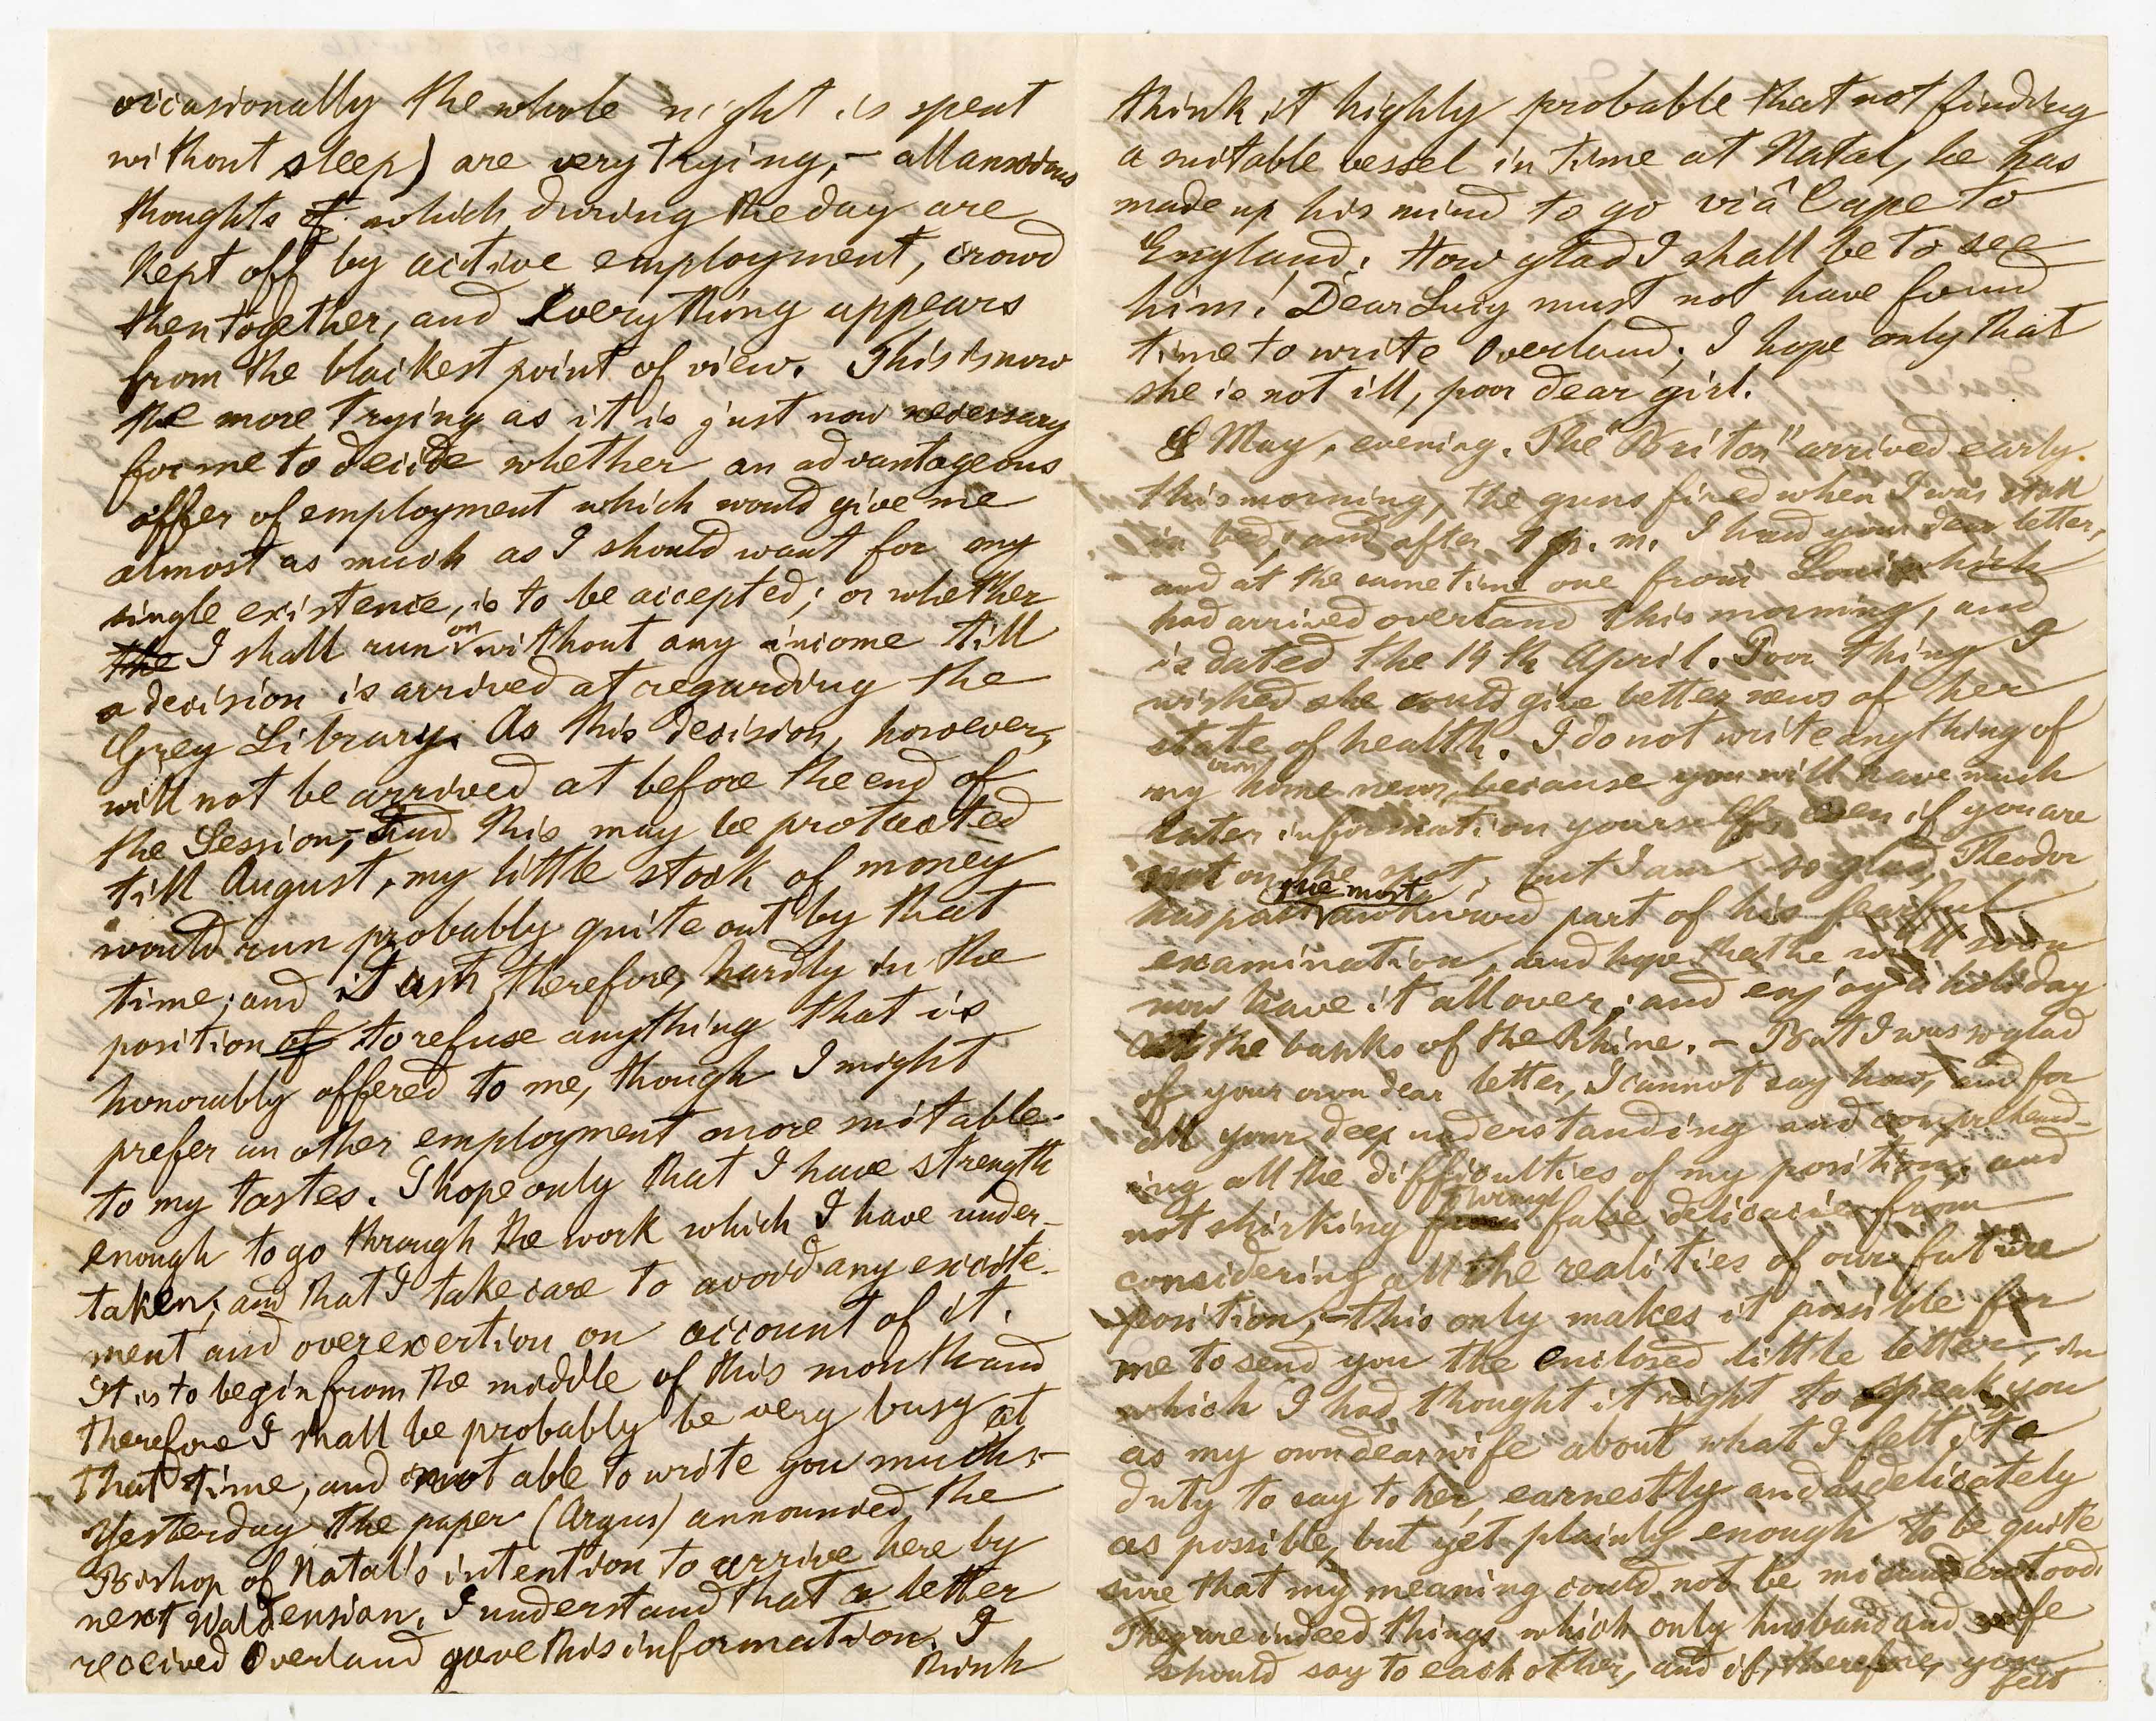 occasionally the whole night is spent
without sleep) are very trying, – all anxious
thoughts of which during the day are
kept off by active employment, crowd
then together, and everything appears
from the blackest point of view. This is now
the more trying as it is just now necessary
for me to decide whether an advantageous
offer of employment which would give me
almost as much as I should want for my
single existence, is to be accepted; or whether
the I shall run on without any income till
a decision is arrived at regarding the
Grey Library. As this decision, however,
will not be arrived at before the end of
the Session, and this may be protracted
till August, my little stock of money
would run probably quite out by that
time; and I am, therefore, hardly in the
position of to refuse anything that is
honorably offered to me, though I might
prefer an other employment more suitable
to my tastes. I hope only that I have strength
enough to go through the work which I have under-
taken; and that I take care to avoid any excite-
ment and overexertion on account of it.
It is to begin from the middle of this month and
therefore I shall be probably be very busy at
that time, and not able to write you much. –
Yesterday the paper (Argus) announced the
Bishop of Natal's intention to arrive here by
next Waldensian. I understand that a letter
received Overland gave this information. I
think
think it highly probable that not finding
a suitable vessel in time at Natal, he has
made up his mind to go viâ Cape to
England. How glad I shall be to see
him! Dear Lucy must not have found
time to write Overland; I hope only that
she is not ill, poor dear girl.
8 May, evening. The "Briton" arrived early
this morning, the guns fired when I was still
in bed, and after 1 p. m. I had your dear letter,
and at the same time one from which
had arrived overland this morning, and
is dated the 19th April. Poor thing I
wished she could give better news of her
state of health. I do not write anything of
my own home news, because you will have much
later information yourself, even if you are
not on the spot; but I am so glad, Theodor
has past the most awkward part of his fearful
examination, and hope that he will soon
now have it all over; and enjoy a holiday
at the banks of the Rhine. – But I was so glad
of your own dear letter, I cannot say how, and for
all your deep understanding and comprehend-
ing all the difficulties of my position, and
not shirking through false delicacies from
considering all the realities of our future
position; – this only makes it possible for
me to send you the enclosed little letter, in
which I had thought it right to speak to you
as my own dear wife about what I felt it a
duty to say to her, earnestly and as delicately
as possible, but yet plainly enough to be quite
sure that my meaning could not be misunderstood.
They are indeed things which only husband and wife
should say to each other, and if, therefore, you
felt